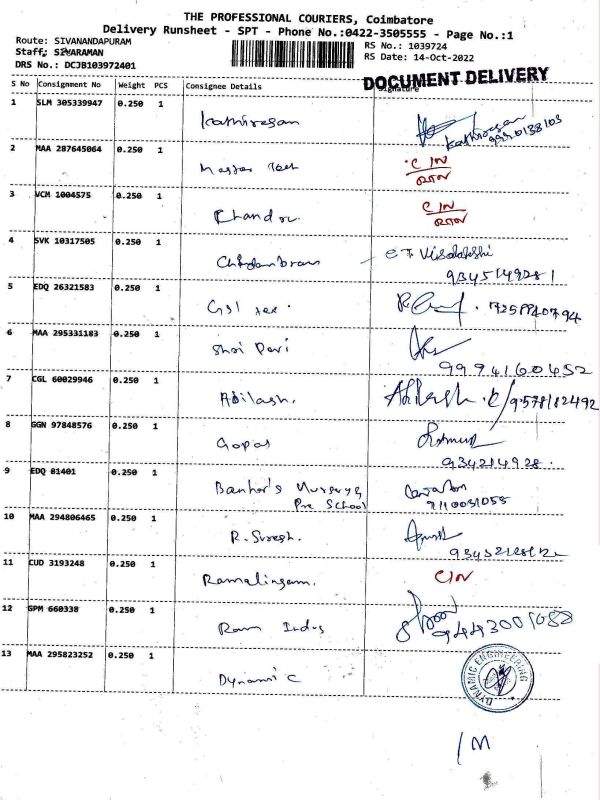 THE PROFESSIONAL COURIERS, Coimbatore
Delivery Runsheet - SPT - Phone No.:0422-3505555 - Page No.:1
Route: SIVANANDAPURAM
RS No.: 1039724
Staff: SIVARAMAN
RS Date: 14-Oct-2022
DRS No.: DCJB103972401
DOCUMENT DELIVERY
S No Consignment No Weight PCS Consignee Details Signature
1 SLM 305339947 0.250 1
Kathiresan
Kathiresan
2 MAA 287645064 0.250 1
Master Tech
C/N
3 VCM 1004575 0.250 1
Chandru
C/N
4 SVK 10317505 0.250 1
Chidambram
Visalakshi
5 EDQ 26321583 0.250 1
6 MAA 295331183 0.250 1
Shri Devi
9994160452
7 CGL 60029946 0.250 1
Abilash.
8 GGN 97848576 0.250 1
Gopal
934214928
9 EDQ 81401 0.250 1
Pre School
10 MAA 294806465 0.250 1
R. Suresh.
11 CUD 3193248 0.250 1
Ramalingam.
C/N
12 GPM 660338 0.250 1
Ram Inds
13 MAA 295823252 0.250 1
Dynamic
DYNAMIC ENGINEERING